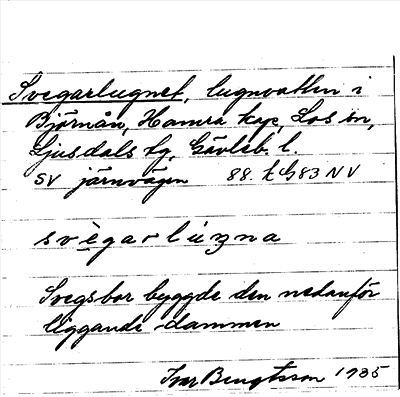 Svegarlugnet, lugnvatten i
Björnån, Hamra kap, Los sn,
Ljusdals tg, Gävleb. l.
SV järnvägen 88. G83 NV
svègarlúna
Svegsbor byggde den nedanför
liggande dammen
Ivar Bengtsson 1935